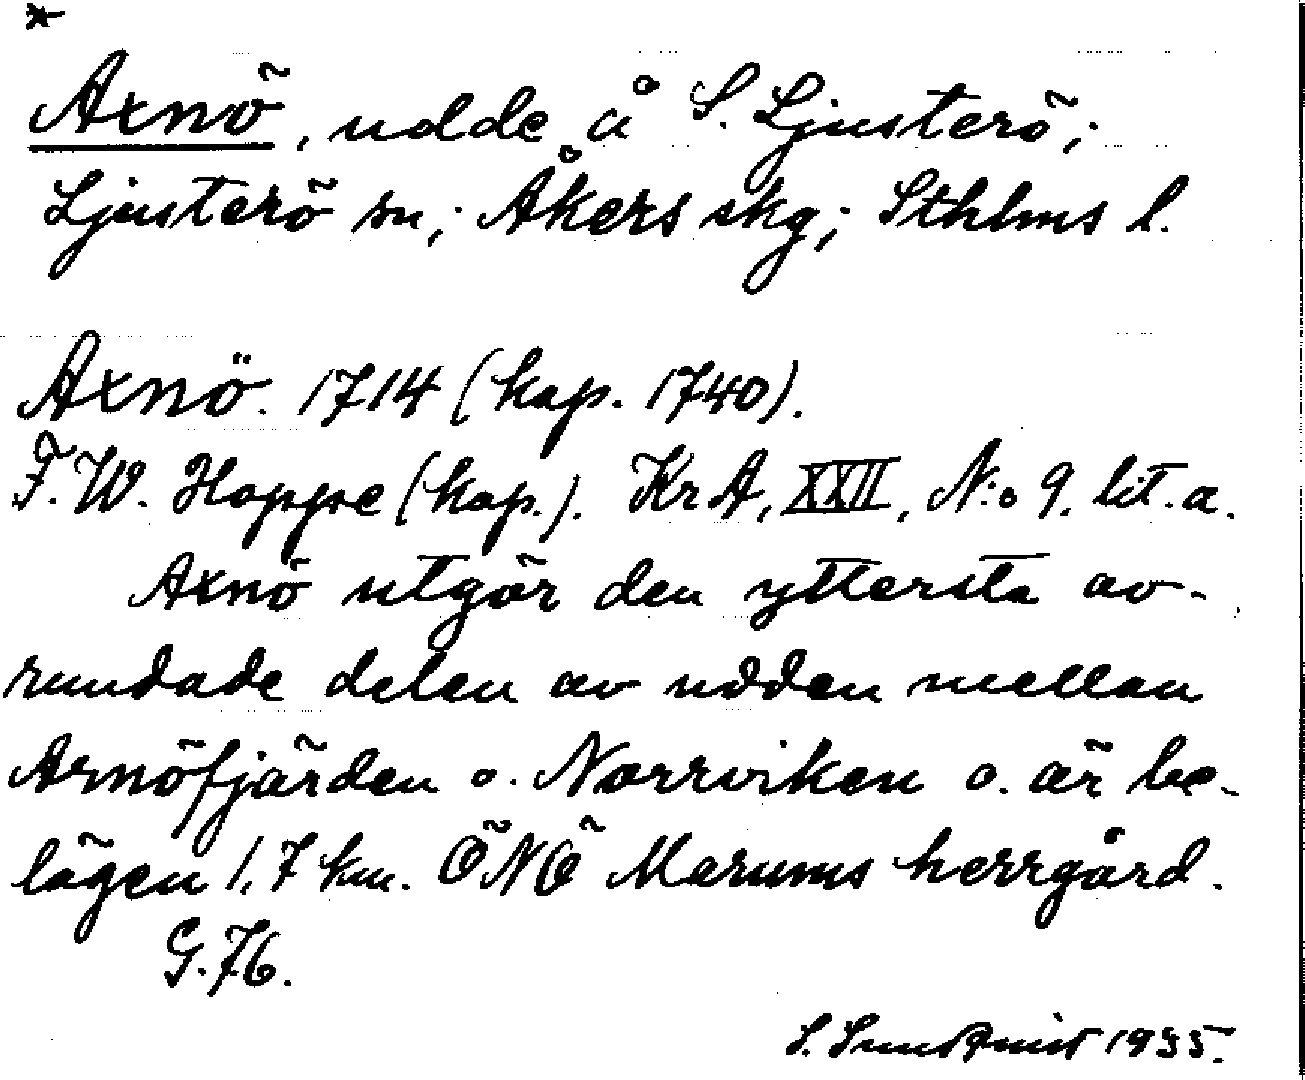 *
Axnö, udde å S. Ljusterö;
Ljusterö sn; Åkers skg; Sthlms l.
Axnö. 1714 (kap. 1740).
F. W. Hoppe (kop.). KrA, XXII, N:o 9. lit. a.
Axnö utgör den yttersta av-
rundade delen av udden mellan
Arnöfjärden o. Norrviken o. är be-
lägen 1,7 km. ÖNÖ Marums herrgård.
G. 76.
S. Sundqvist 1935.